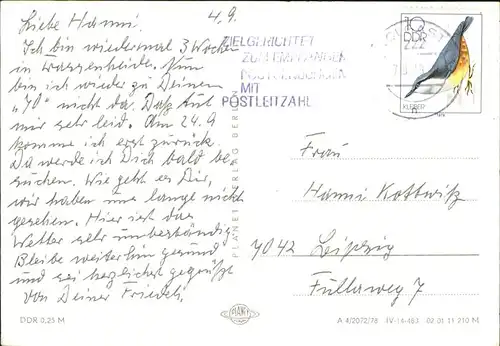 Liebe Hanni. 4.9.
Ich bin wiedermal 3 Wochen
in Nun
bin ich wieder zu Deinem
"70" nicht da. Daß tut
mir sehr leid. Am 24.9
komme ich erst zurück.
Da werde ich Dich bald be-
suchen. Wie geht es Dir,
wir haben uns lange nicht
gesehen. Hier ist das
Wetter sehr unbeständig
Bleibe weiterhin gesund
und sei herzlichst gegrüßt
von Deiner
DDR 0,25 M
PLANET VERLAG BERLIN
PLANET
ZIELGERICHTET
ZUM EMPFÄNGER
MIT
POSTLEITZAHL
222
10
DDR
KLEIBER
Frau
Hanni Kottwitz
7042 Leipzig
Füllaweg 7
A 4/2072/78 IV-14-483 02 01 11 210 M